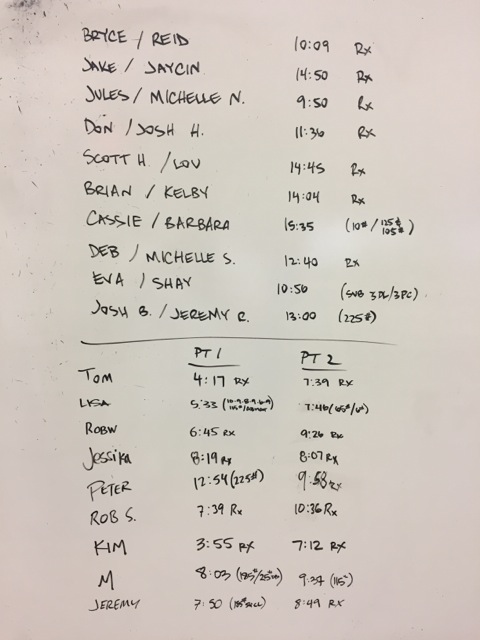 BRYCE / REID 10:09 Rx
JAKE / JAYCIN 14:50 Rx
JULES / MICHELLE N. 9:50 Rx
DON / JOSH H. 11:36 Rx
SCOTT H. / LOU 14:45 Rx
BRIAN / KELBY 14:04 Rx
CASSIE / BARBARA 15:35 (10# / 125# 105#)
DEB / MICHELLE S. 12:40 Rx
EVA / SHAY 10:50 (SUB 3DL/3PC)
JOSH B. / JEREMY R. 13:00 (225#)
PT 1 PT 2
TOM 4:17 RX 7:39 RX
LISA 5:33 7:46
ROBW 6:45 RX 9:26 Rx
Jessika 8:19 Rx 8:07 Rx
PETER 12:54 (225#) 9:58 Rx
ROB S. 7:39 Rx 10:36 Rx
KIM 3:55 RX 7:12 RX
M 8:03 9:34 (115#)
JEREMY 7:50 8:49 RX